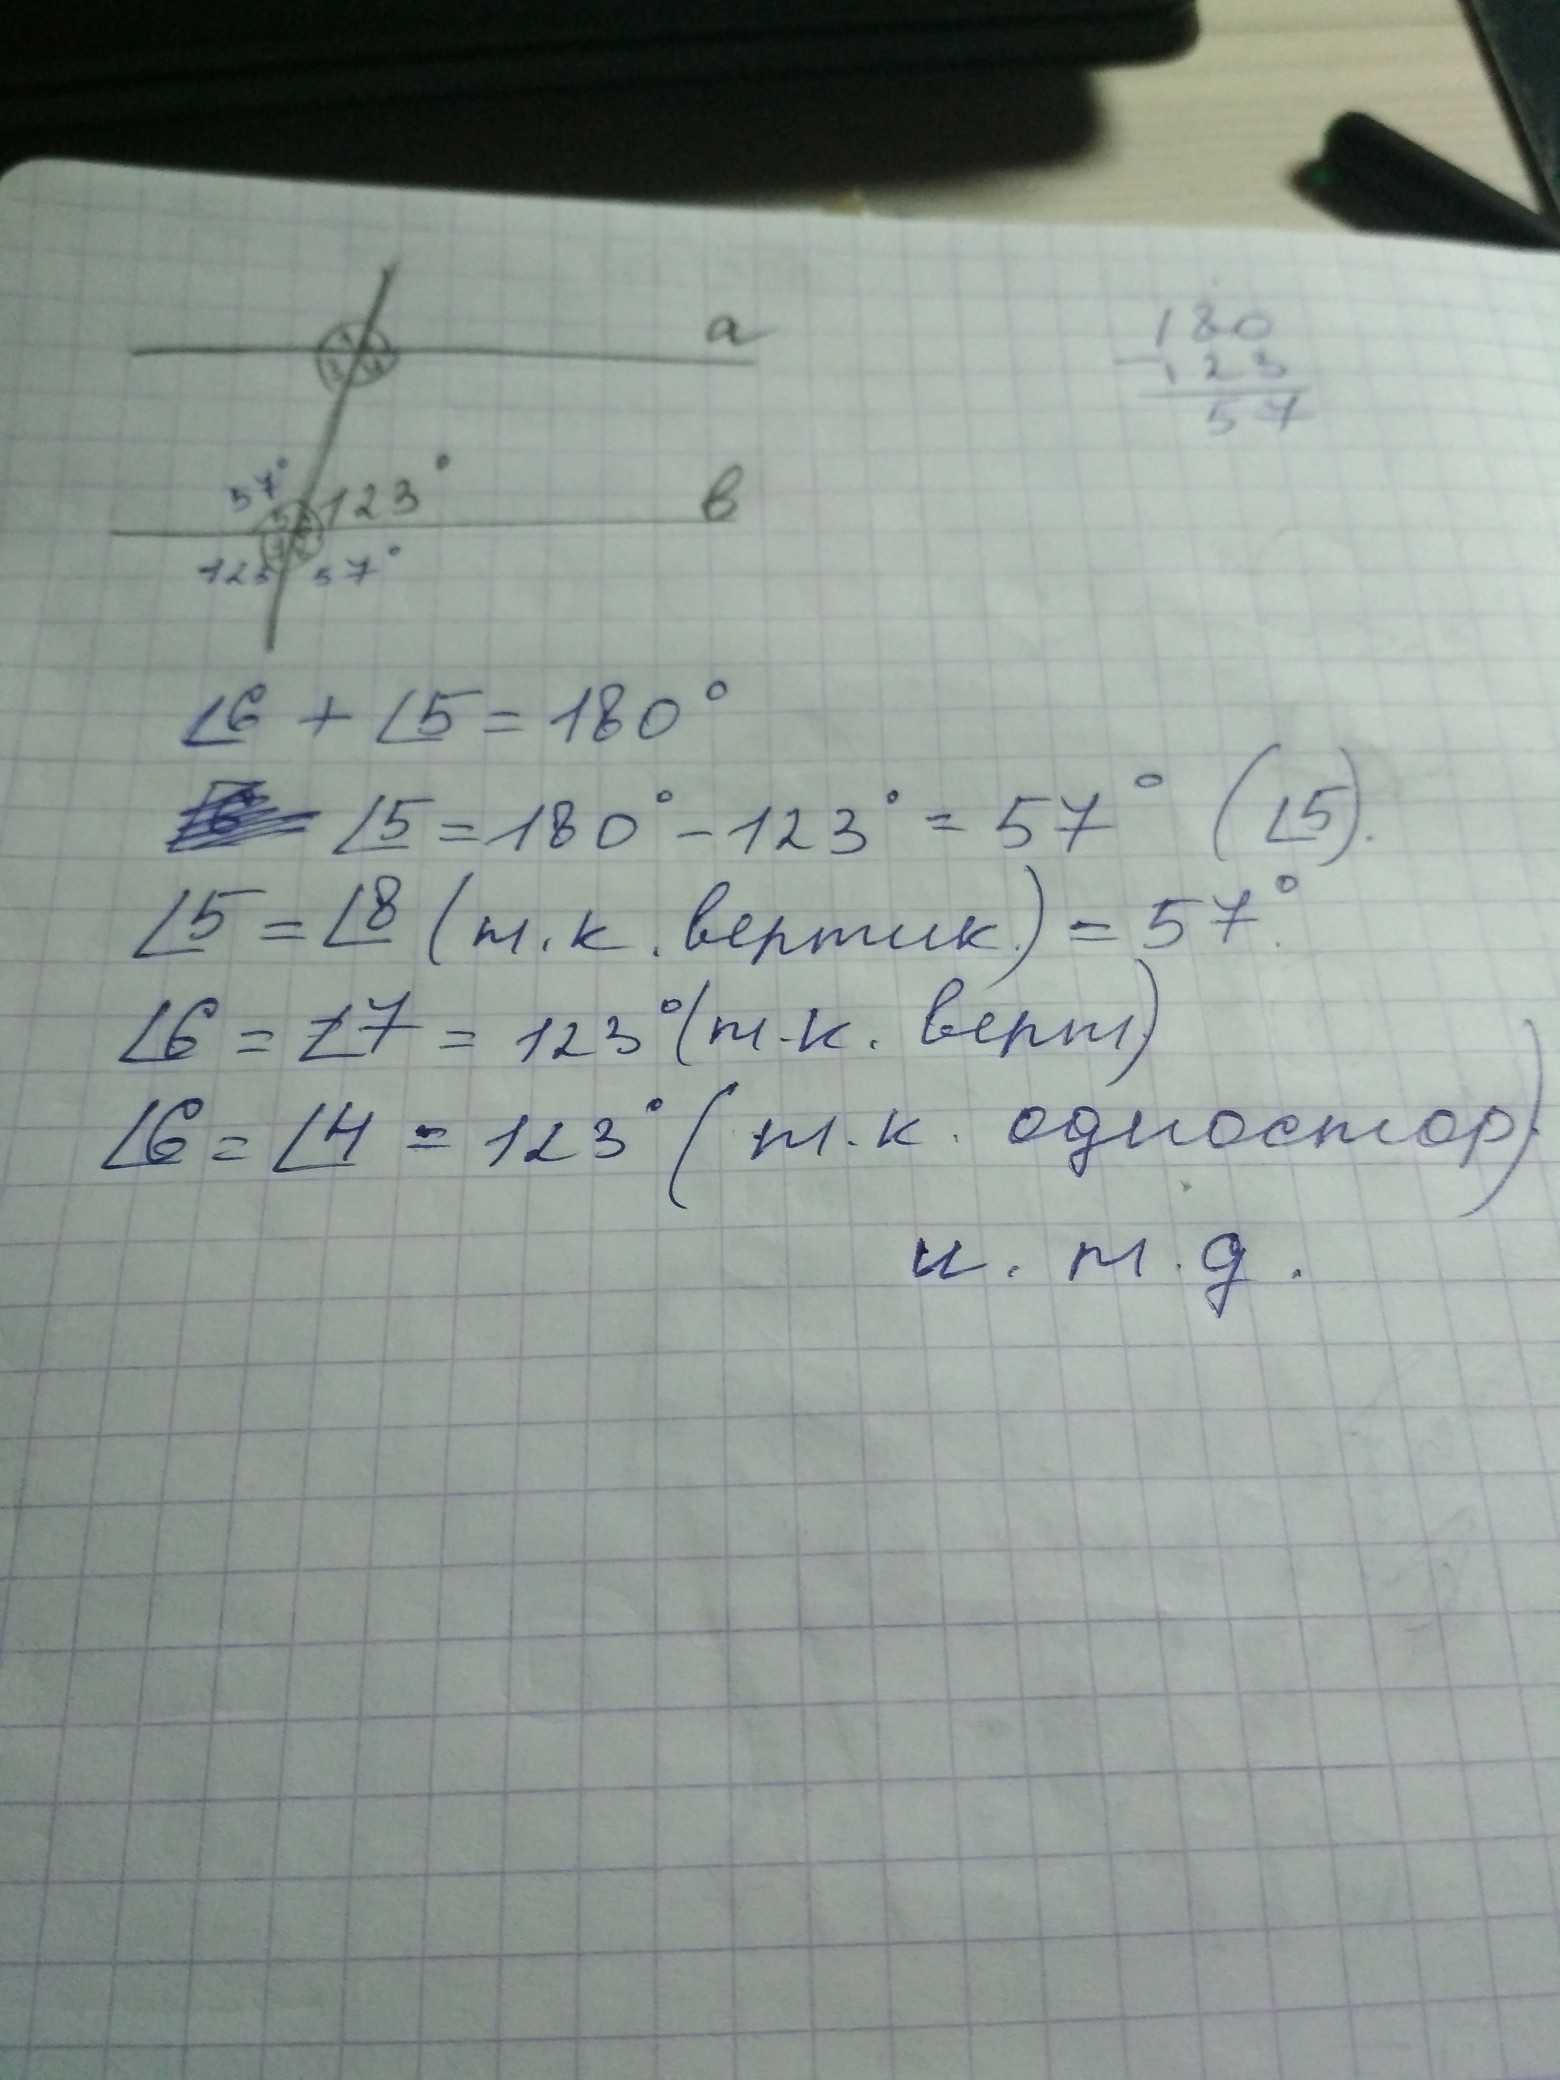 a
180
- 123
57
1
3 4
57°
123°
в
5
123 57°
∠6 + ∠5 = 180°
∠5 = 180° - 123° = 57° (∠5).
∠5 = ∠8 (т.к. вертик.) = 57°.
∠6 = ∠7 = 123° (т.к. верт)
∠6 = ∠4 = 123° (т.к. одностор)
и. т. д.